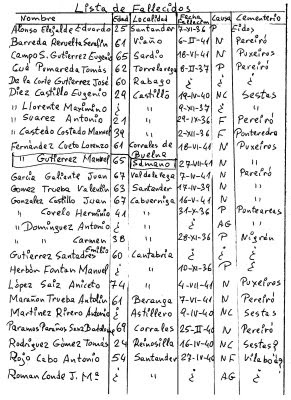 Lista de Fallecidos
Nombre Edad Localidad Fecha Fallecim Causa Cementerio
Alonso Elejalde Edvardo 25 Santander 7-XI-36 P Eidos
Barreda Revuelta Serafín 61 Viaño 6-II-41 N Pereiró
Campo S. Gutierrez Eugenio 65 Sardio 18-VI-41 N Puxeiros
Cué Pumareda Tomás 62 Torrelavega 16-II-37 P Pereiró
De la Corte Gutierrez José 60 Rabago ¿ ¿ ¿
Diez Castillo Eugenio 29 Castillo 19-IV-40 NC Sestas
" Llorente Maximino ¿ " 9-XII-37 ¿ ¿
" Suarez Antonio 21 " 29-IX-36 F Pereiró
" Castedo Costado Manuel 39 " 2-XII-36 F Pontevedra
Fernández Cueto Lorenzo 61 Corrales de Buelna 18-VI-41 N Puxeiros
" Gutierrez Manuel 65 Sámano 27-VII-41 N "
García Galiente Juan 67 Valdelvega 7-IV-41 N Pereiró
Gomez Trueba Valentín 63 Santander 17-IV-39 N "
Gonzalez Castillo Juan 67 Cabuerniga 16-V-41 N "
" Covelo Herminio 41 " 31-X-36 P Punteareas
" Dominguez Antonio ¿ " ¿ AG ¿
" " Carmen 38 " 28-XI-36 P Nigrán
Gutierrez Santadres Emilio 60 Cantabria ¿ ¿ ¿
Herbón Fontan Manuel ¿ " 10-XI-36 P ¿
López Saiz Aniceto 74 " 4-VII-41 N Puxeiros
Marañon Trueba Antolín 61 Beranga 7-VI-41 N Pereiró
Martinez Rivero Antonio ¿ Astillero 9-IV-40 NC Sestas
Paramos Paraños Saiz 69 Corrales 25-II-40 N Pereiró
Rodríguez Gómez Tomás 24 Reinosilla 16-IV-40 NC Sestas?
Rojo Cabo Antonio 54 Santander 27-IV-40 NF Vilaboa?
Roman Conde J. Mª ¿ ¿ AG ¿